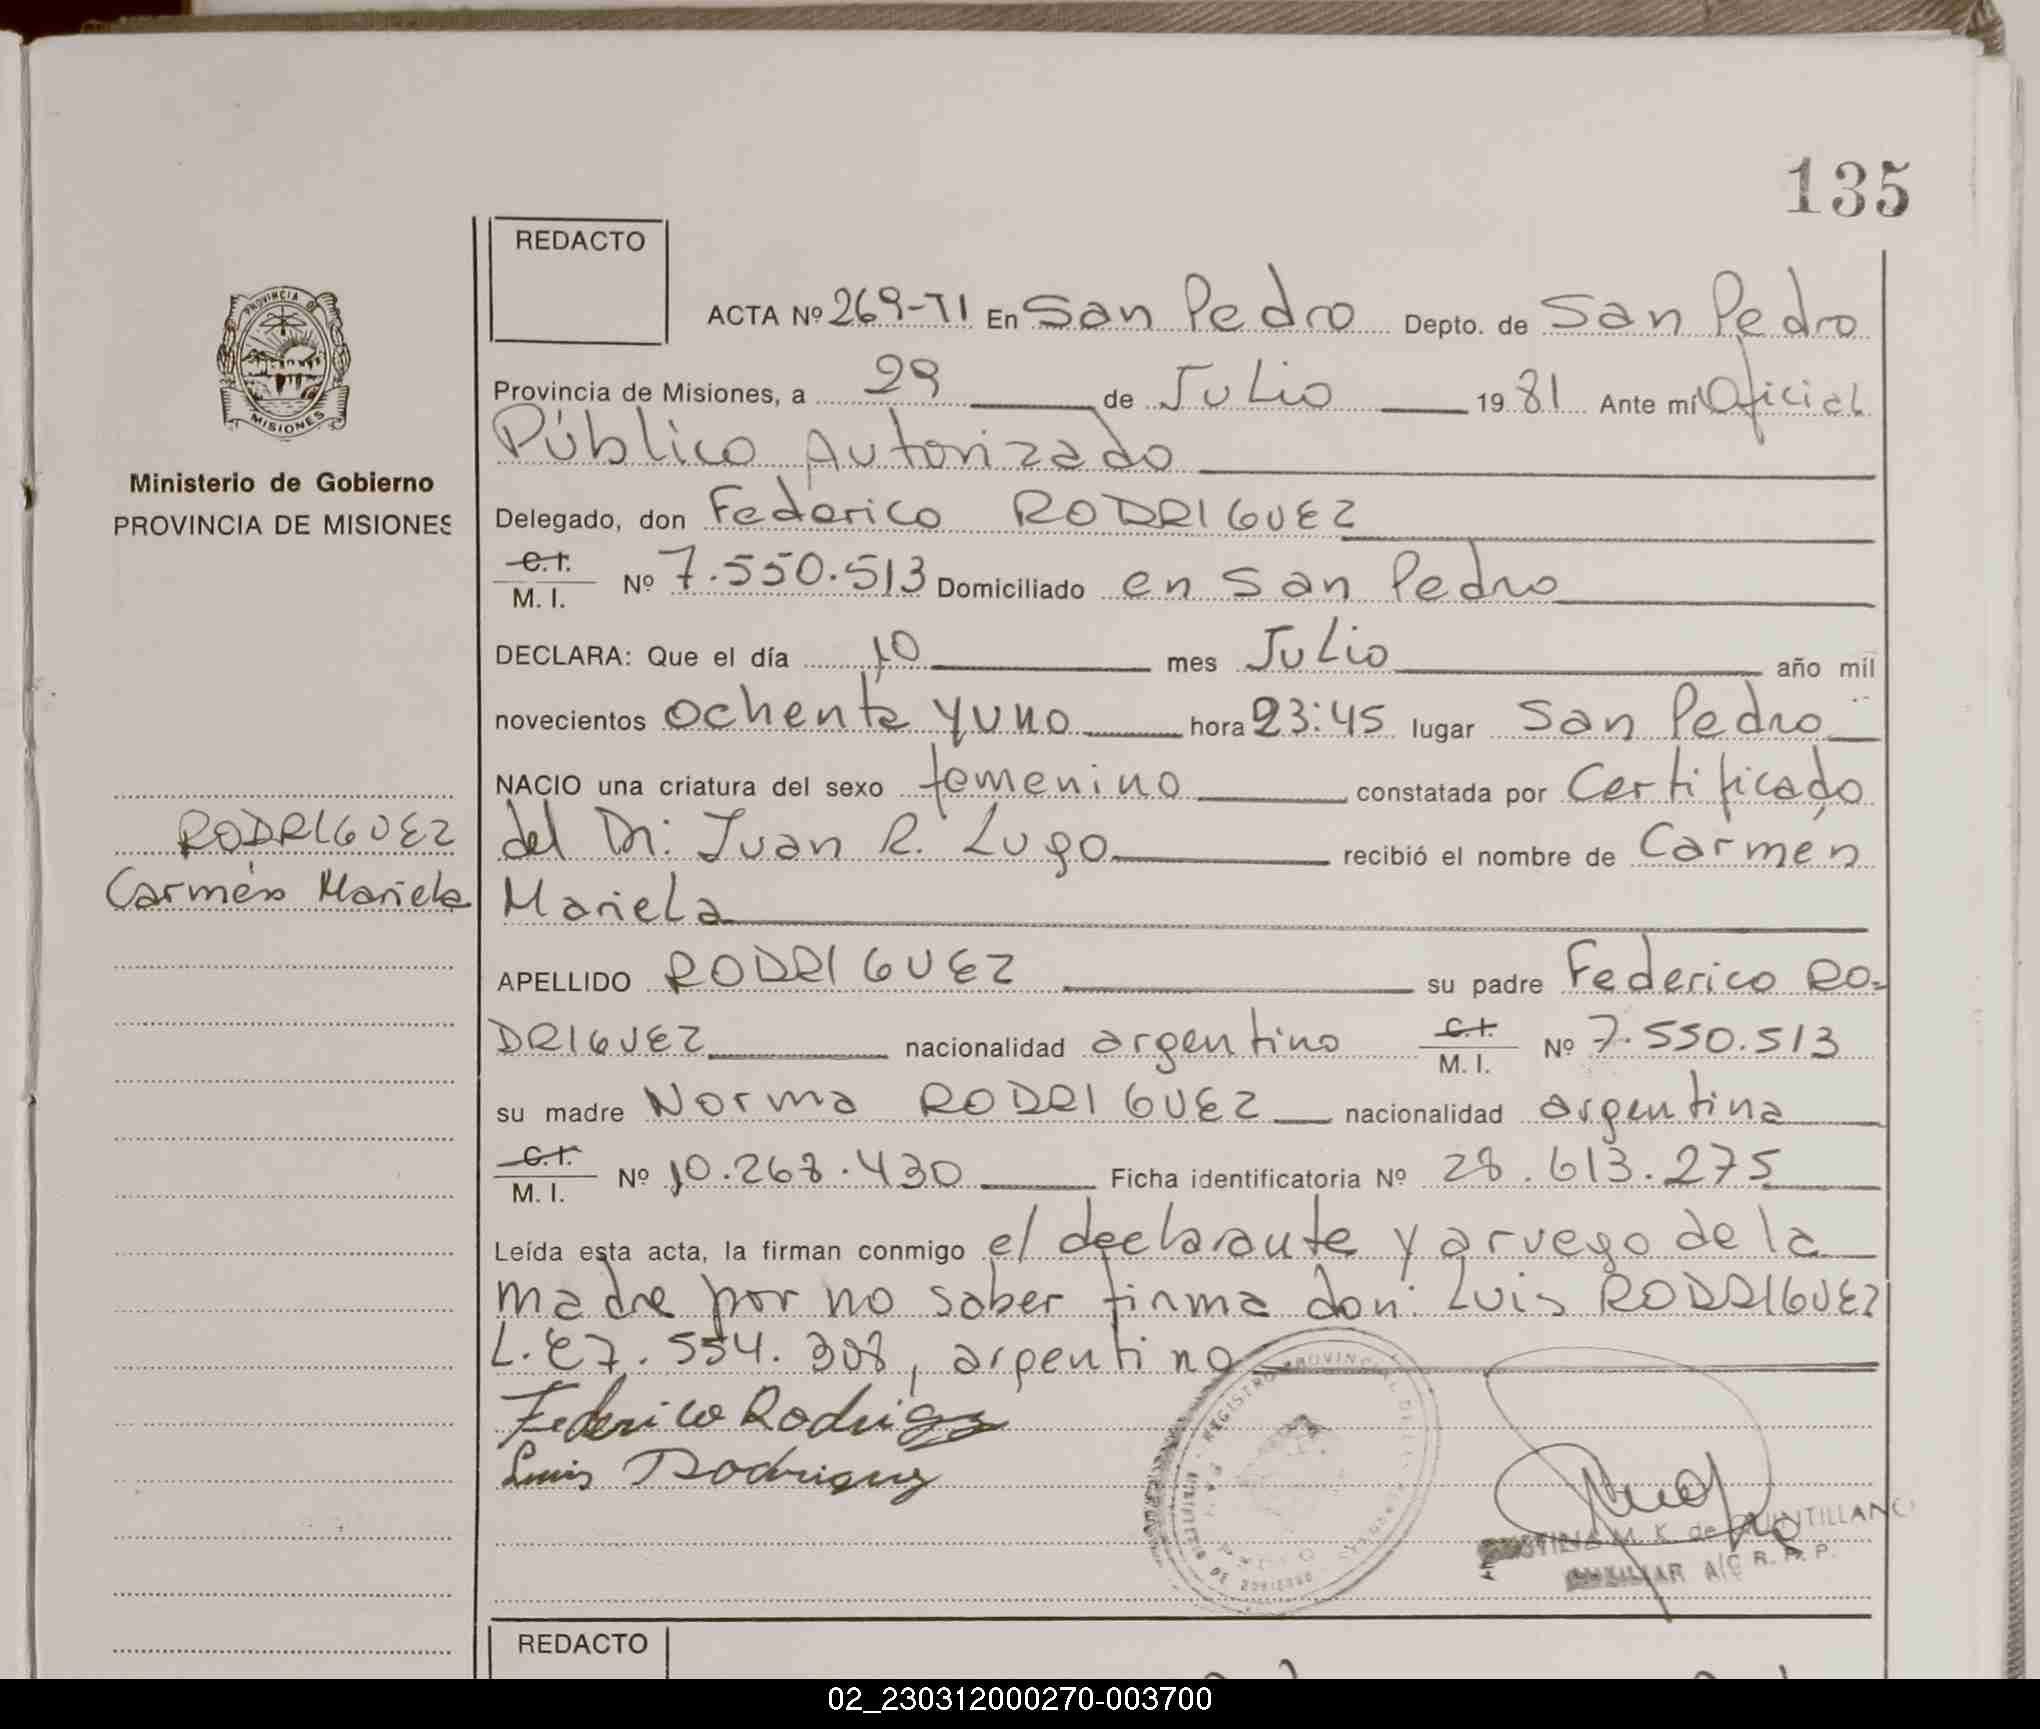 135
REDACTO
ACTA Nº 269-TI En San Pedro Depto. de San Pedro
Provincia de Misiones, a 29 de Julio 1981 Ante mí Oficial
Público Autorizado
Delegado, don Federico RODRIGUEZ
C.I.
M. I. Nº 7.550.513 Domiciliado en San Pedro
DECLARA: Que el día 10 mes Julio año mil
novecientos ochenta y uno hora 23:45 lugar San Pedro
NACIO una criatura del sexo femenino constatada por Certificado
del Dr. Juan R. Lugo recibió el nombre de Carmen
Mariela
APELLIDO RODRIGUEZ su padre Federico RO-
DRIGUEZ nacionalidad argentino C.I. M. I. Nº 7.550.513
su madre Norma RODRIGUEZ nacionalidad argentina
C.I.
M. I. Nº 10.268.430 Ficha identificatoria Nº 28.613.275
Leída esta acta, la firman conmigo el declarante y a ruego de la
madre por no saber firma don: Luis RODRIGUEZ
L.E 7.554.308, argentino
Federico Rodriguez
Luis Rodriguez
M. K. de QUINTILLAN
AUXILIAR A/C R.P.P.
PROVINCIA DE
MISIONES
Ministerio de Gobierno
PROVINCIA DE MISIONES
RODRIGUEZ
Carmen Mariela
REDACTO
02_230312000270-003700